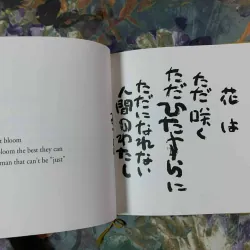 t bloom
loom the best they can
man that can't be "just"
花は
ただ咲く
ただひたすらに
ただになれない
人間のわたし